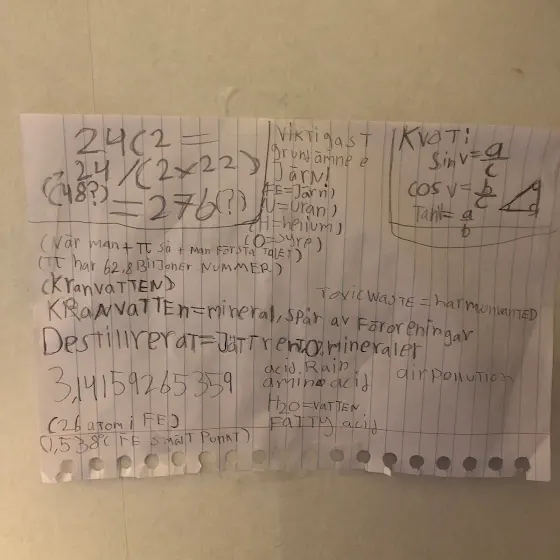 24C2 =
24/(2x22)
(48?) = 276(?)
VIKTIGAST
grunsämne e
JÄRN!
(FE=Järn)
(U=Uran)
(H=helium)
(O=syre)
KVOT:
sin v = a/c
cos v = b/c
Tan = a/b
(När man + π så + man Första TALET)
(π har 62,8 BilJoner NUMMER)
(KranVATTEN)
TOXIC WASTE =
KRANVATTEn=mineral, spår av Föroreningar
DestilIrerat=JÄTTrent,0,mineraler
3,14159265359
acid Rain
amino acid
airpollution
H2O=VATTEN
FATTY acid
(26 atom i FE)
(1,538°C FE smält PunkT)